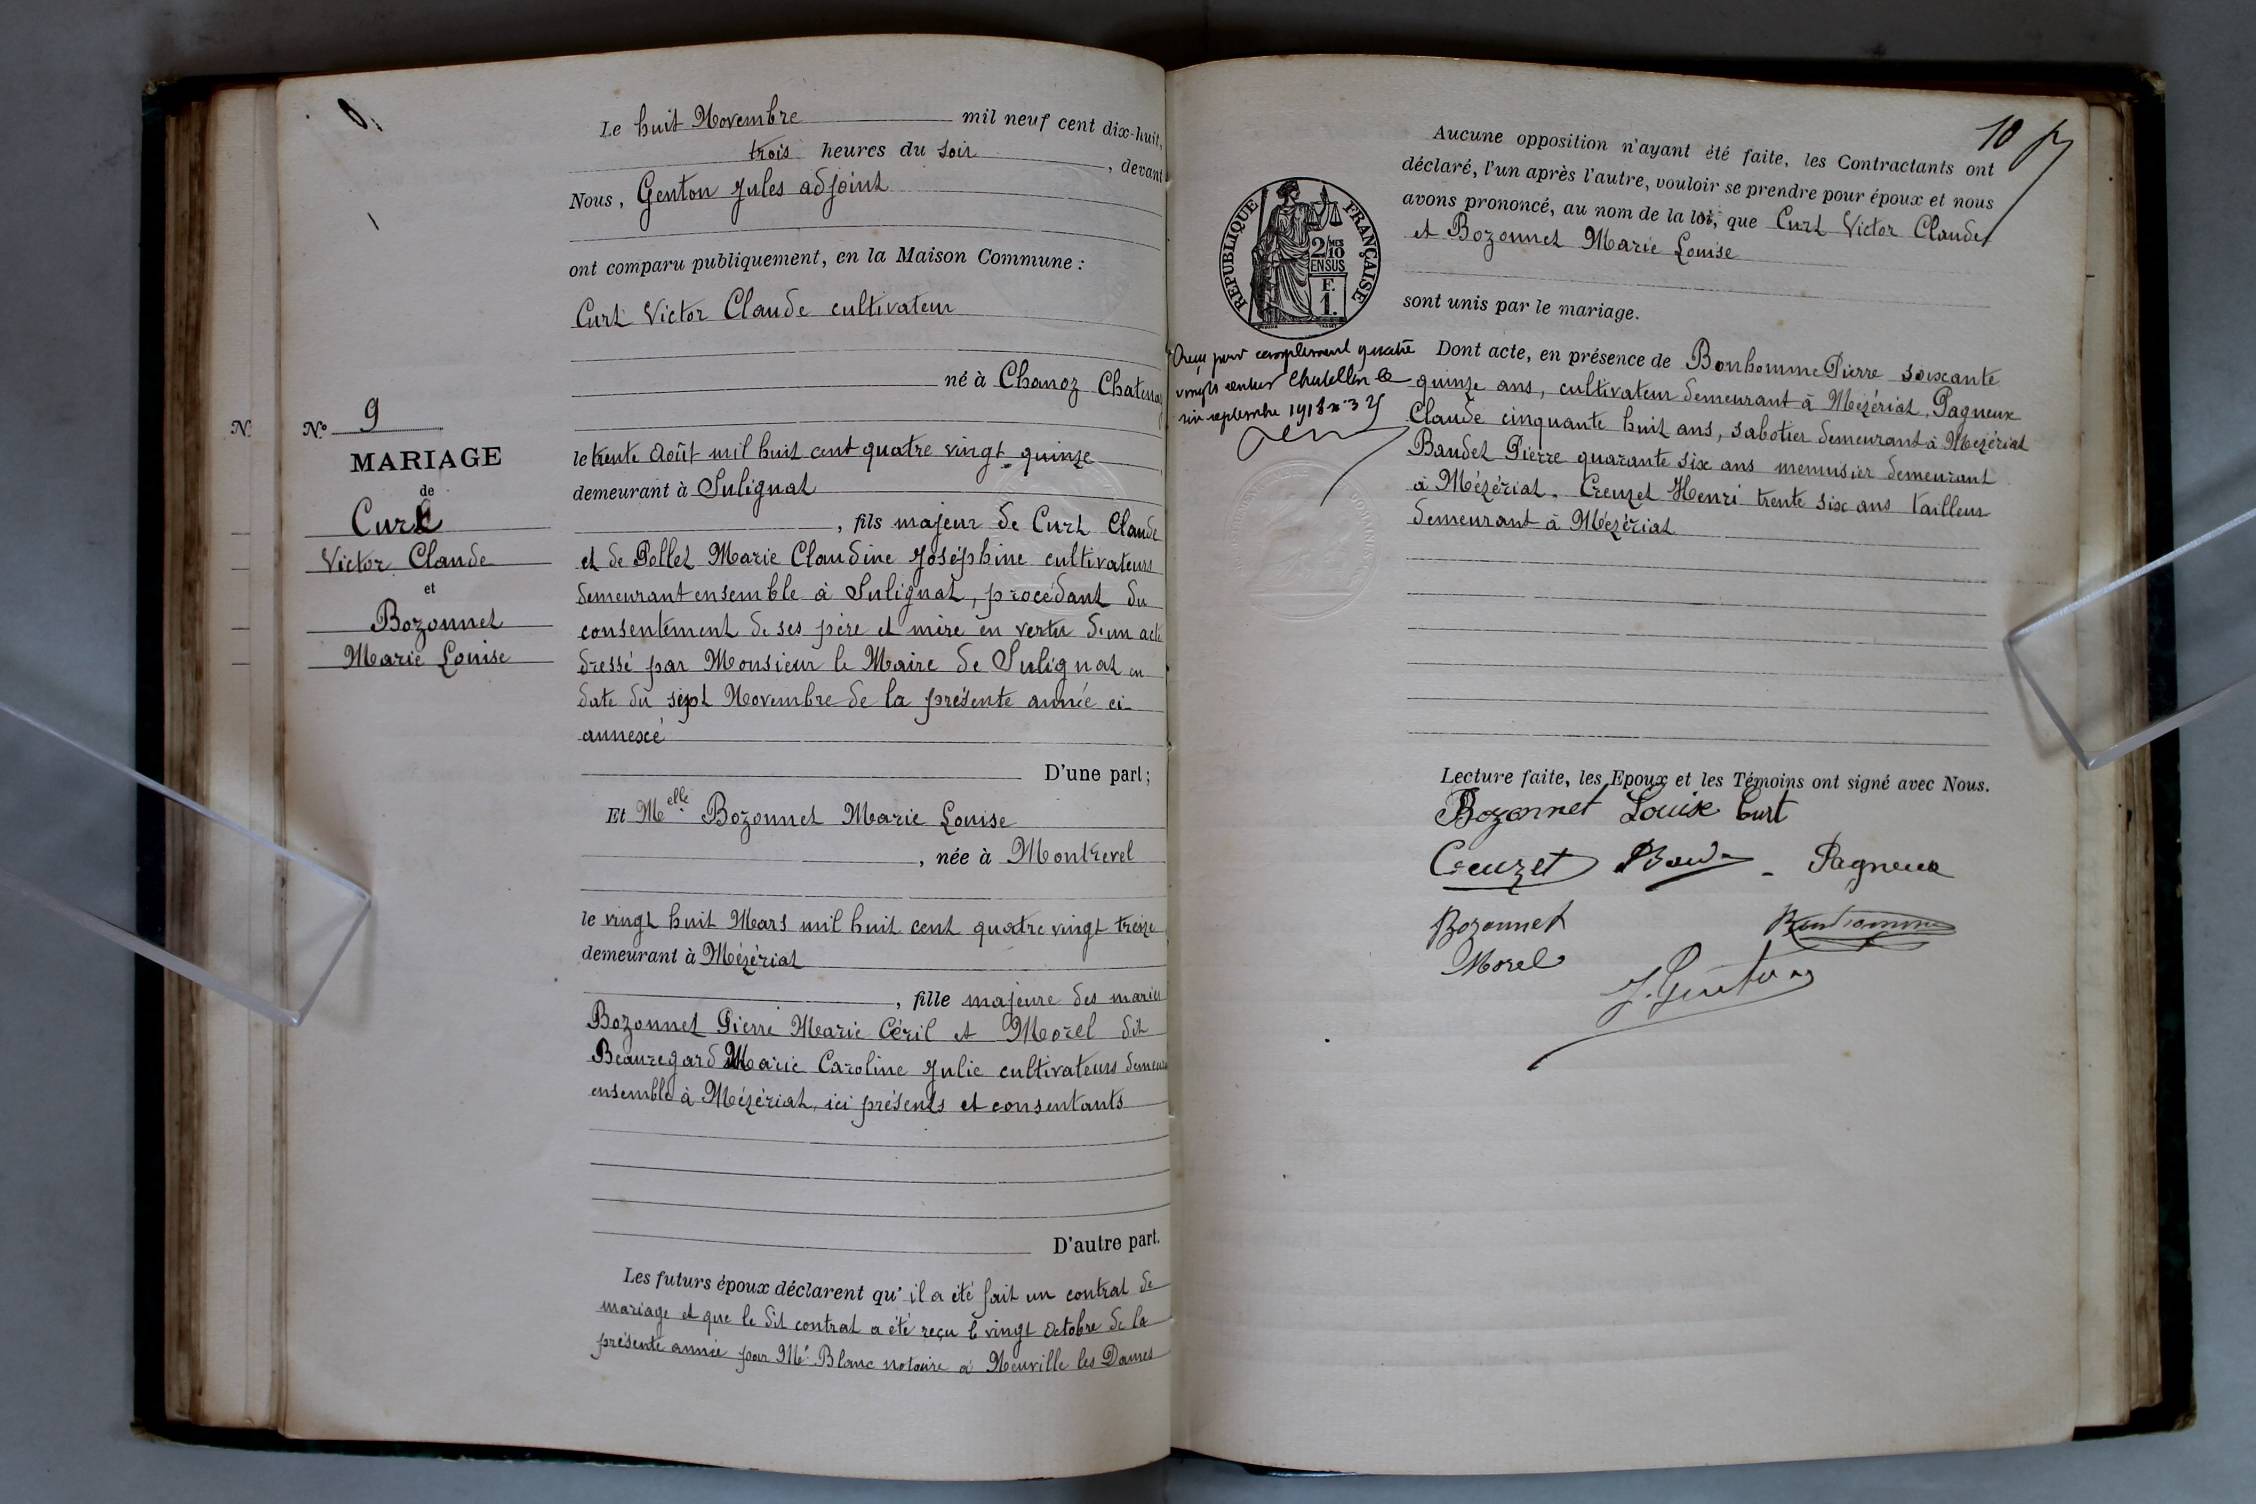 Le huit Novembre mil neuf cent dix-huit,
trois heures du soir, devant
Nous, Genton Jules adjoint
ont comparu publiquement, en la Maison Commune :
Curt Victor Claude cultivateur
né à Chanoz Chatenay
le trente Août mil huit cent quatre vingt quinze
demeurant à Sulignat
, fils majeur de Curt Claude
et de Pollet Marie Claudine Joséphine cultivateurs
demeurant ensemble à Sulignat, procédant du
consentement de ses père et mère en vertu d'un acte
dressé par Monsieur le Maire de Sulignat en
date du sept Novembre de la présente année ci-
annexé
D'une part;
Et Melle Bozonnet Marie Louise
, née à Montrevel
le vingt huit Mars mil huit cent quatre vingt treize
demeurant à Mézériat
, fille majeure des mariés
Bozonnet Pierre Marie Céril et Morel dit
Beauregard Marie Caroline Julie cultivateurs
ensemble à Mézériat, ici présents et consentants
D'autre part.
Les futurs époux déclarent qu'il a été fait un contrat de
mariage et que le dit contrat a été reçu le vingt Octobre de la
présente année par Me Blanc notaire à Neuville les Dames
N.
No 9
MARIAGE
de
Curt
Victor Claude
et
Bozonnet
Marie Louise
10
Aucune opposition n'ayant été faite, les Contractants ont
déclaré, l'un après l'autre, vouloir se prendre pour époux et nous
avons prononcé, au nom de la loi, que Curt Victor Claude
et Bozonnet Marie Louise
sont unis par le mariage.
RÉPUBLIQUE FRANÇAISE
2/10
EN SUS
F.
1.
Reçu pour complément quatre
vingts centimes Chatillon le
six septembre 1918
Dont acte, en présence de Bonhomme Pierre soixante
quinze ans, cultivateur demeurant à Mézériat, Pagneux
Claude cinquante huit ans, sabotier demeurant à Mézériat
Baudet Pierre quarante six ans menusier demeurant
à Mézériat. Creuzet Henri trente six ans tailleur
demeurant à Mézériat
Lecture faite, les Epoux et les Témoins ont signé avec Nous.
Bozonnet Louise Curt
Creuzet Pagneux
Bozonnet Bonhomme
Morel
J. Genton